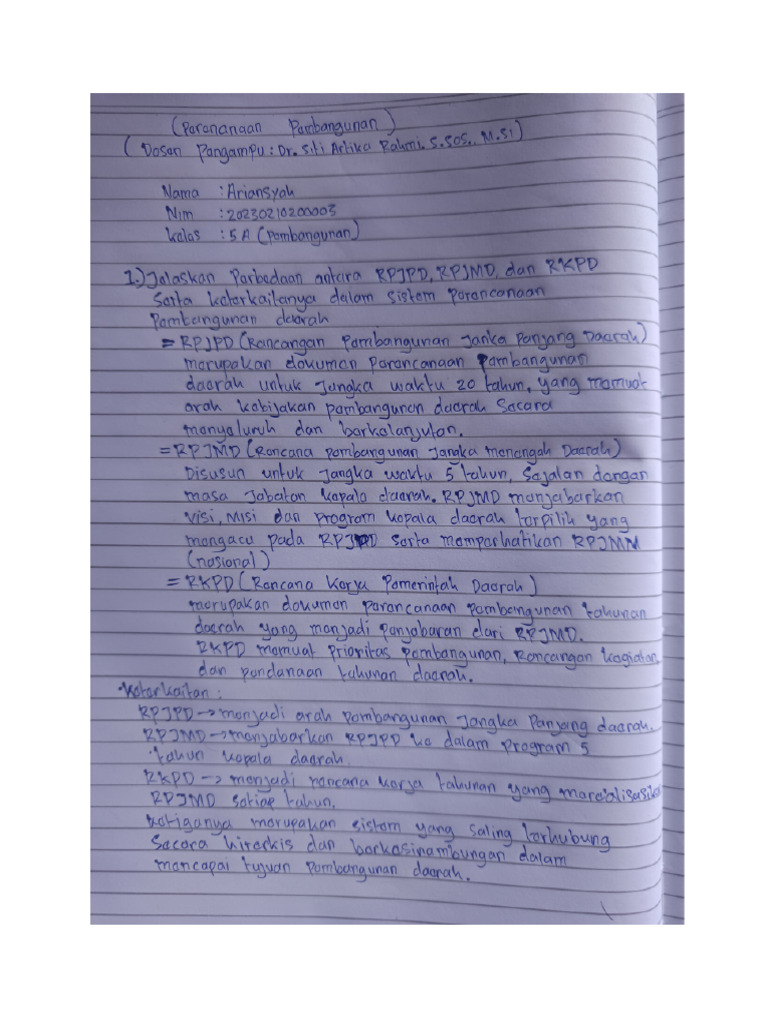 (Perencanaan Pembangunan)
(Dosen Pengampu : Dr. Siti Artika Rahmi. S.Sos., M.Si)
Nama : Ariansyah
Nim : 20230210200003
kelas : 5 A (pembangunan)
1.) Jelaskan Perbedaan antara RPJPD, RPJMD, dan RKPD
Serta keterkaitanya dalam sistem perencanaan
Pembangunan daerah
= RPJPD (Rancangan Pembangunan Janka Panjang Daerah)
merupakan dokumen perencanaan Pembangunan
daerah untuk jangka waktu 20 tahun, yang memuat
arah kebijakan pembangunan daerah secara
menyeluruh dan berkelanjutan.
= RPJMD (Rencana pembangunan jangka menengah Daerah)
Disusun untuk jangka waktu 5 tahun, sejalan dengan
masa jabatan kepala daerah. RPJMD menjabarkan
visi, misi dan program kepala daerah terpilih yang
mengacu pada RPJPD serta memperhatikan RPJMN
(nasional)
= RKPD (Rencana Kerja Pemerintah Daerah)
merupakan dokumen perencanaan pembangunan tahunan
daerah yang menjadi penjabaran dari RPJMD.
RKPD memuat prioritas pembangunan, rancangan kegiatan,
dan pendanaan tahunan daerah.
• Keterkaitan :
RPJPD → menjadi arah pembangunan jangka panjang daerah.
RPJMD → menjabarkan RPJPD ke dalam program 5
tahun kepala daerah.
RKPD → menjadi rencana kerja tahunan yang
RPJMD setiap tahun.
Ketiganya merupakan sistem yang saling terhubung
secara hirerkis dan berkesinambungan dalam
mencapai tujuan pembangunan daerah.